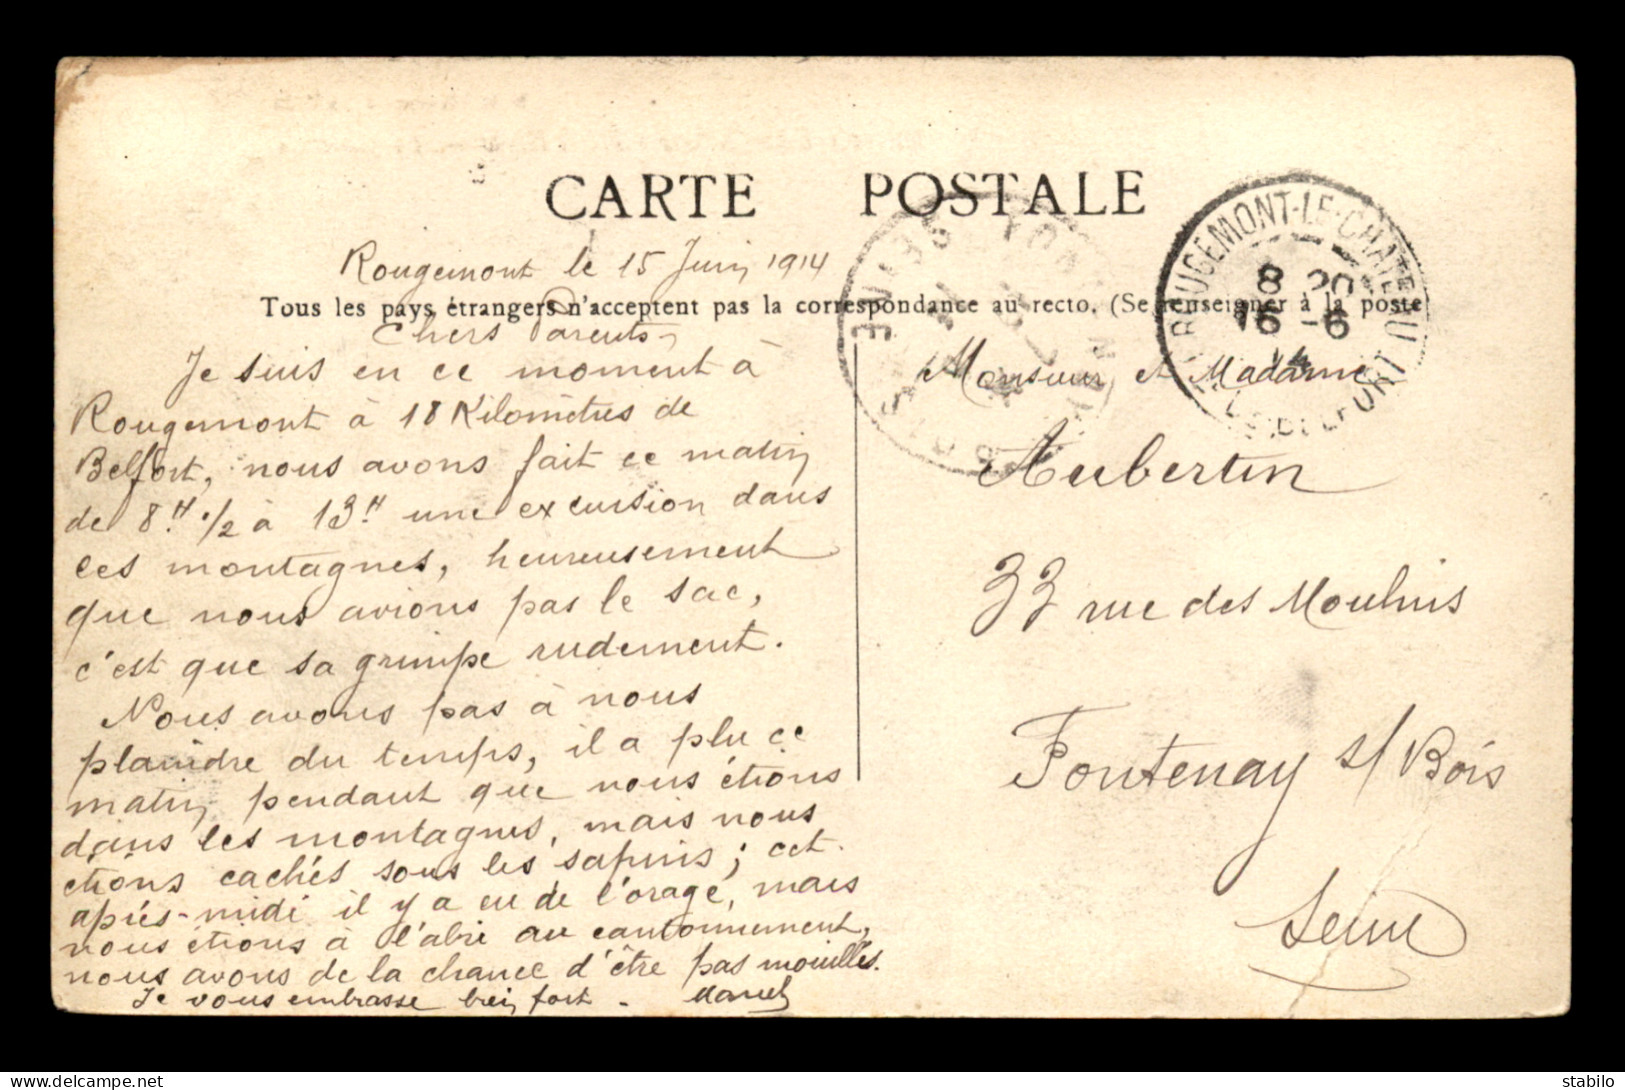 CARTE POSTALE
Rougemont le 15 Juin 1914
Tous les pays étrangers n'acceptent pas la correspondance au recto. (Se renseigner à la poste
Chers Parents,
Je suis en ce moment à
Rougemont à 18 Kilomètres de
Belfort, nous avons fait ce matin
de 8H 1/2 à 13H une excursion dans
les montagnes, heureusement
que nous avions pas le sac,
c'est que sa grimpe rudement.
Nous avons pas à nous
plaindre du temps, il a plu ce
matin pendant que nous étions
dans les montagnes, mais nous
étions cachés sous les sapins; cet
après-midi il y a eu de l'orage, mais
nous étions à l'abri au cantonnement,
nous avons de la chance d'être pas mouillés.
Je vous embrasse bien fort. Marcel
Monsieur et Madame
Aubertin
33 rue des Moulins
Fontenay s/ Bois
Seine
ROUGEMONT-LE-CHATEAU
8 20
16 -6
14
delcampe.net
stabilo